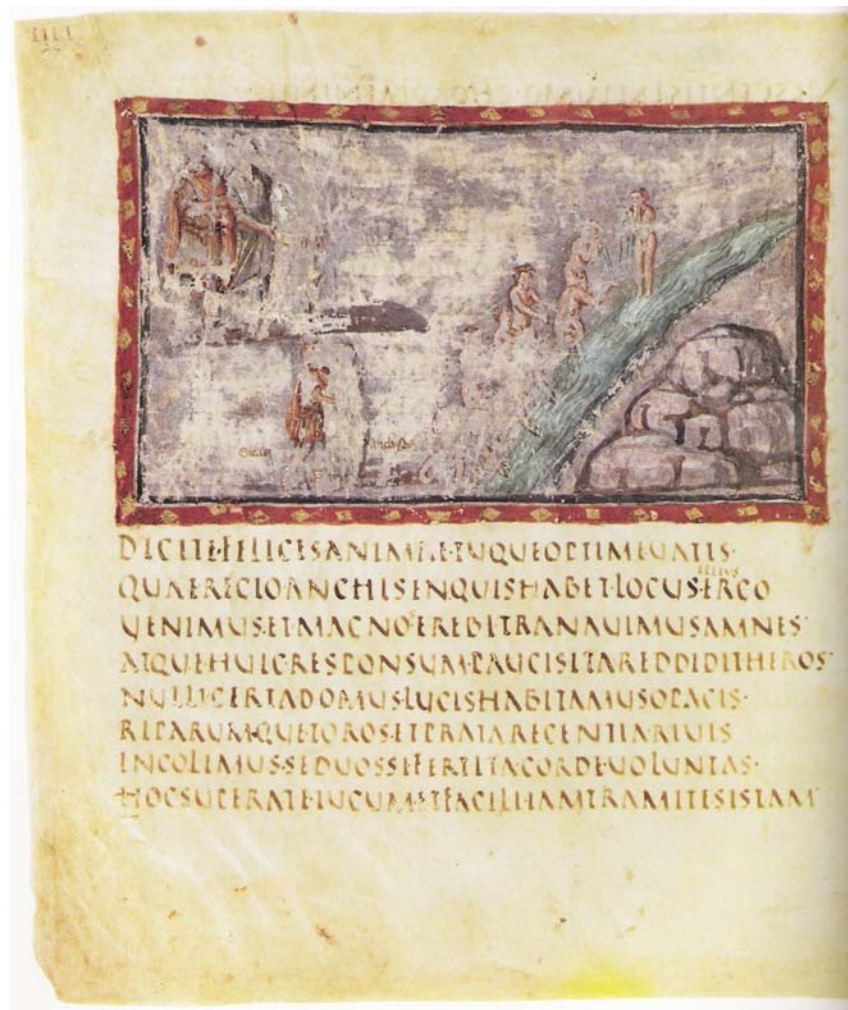 DICITE·FELICESANIMAE·TUQUEOPTIMEUATIS·
ILLIUS
QUAEREGIOANCHISENQUISHABET·LOCUS·ERGO
UENIMUS·ETMAGNOSEREBITRANAUIMUSAMNES·
ATQUEHUICRESPONSUM·PAUCISITAREDDIDITHEROS·
NULLICERTADOMUS·LUCISHABITAMUSOPACIS·
RIPARUM·QUETOROS·ETPRATARECENTIA·RIUIS
INCOLIMUS·SEDUOSSIFERTITACORDEUOLUNTAS·
HOCSUPERATEIUGUM·ETFACILIIAMTRAMITESISTAM